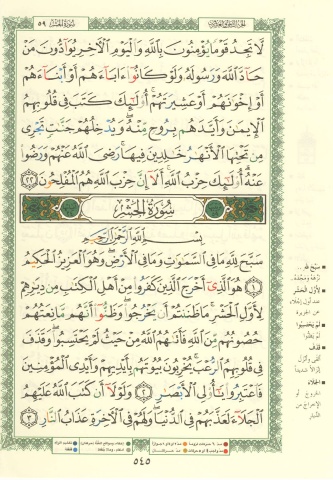 الجزء الثامن والعشرون
سورة الحشر ٥٩
لَّا تَجِدُ قَوْمًا يُؤْمِنُونَ بِاللَّهِ وَالْيَوْمِ الْآخِرِ يُوَآدُّونَ مَنْ
حَآدَّ اللَّهَ وَرَسُولَهُ وَلَوْ كَانُوٓا۟ ءَابَآءَهُمْ أَوْ أَبْنَآءَهُمْ
أَوْ إِخْوَٰنَهُمْ أَوْ عَشِيرَتَهُمْ أُو۟لَٰٓئِكَ كَتَبَ فِى قُلُوبِهِمُ
الْإِيمَٰنَ وَأَيَّدَهُم بِرُوحٍ مِّنْهُ وَيُدْخِلُهُمْ جَنَّٰتٍ تَجْرِى
مِن تَحْتِهَا الْأَنْهَٰرُ خَٰلِدِينَ فِيهَا رَضِىَ اللَّهُ عَنْهُمْ وَرَضُوا۟
عَنْهُ أُو۟لَٰٓئِكَ حِزْبُ اللَّهِ أَلَآ إِنَّ حِزْبَ اللَّهِ هُمُ الْمُفْلِحُونَ ٢٢
سُورَةُ الْحَشْرِ
بِسْمِ اللَّهِ الرَّحْمَٰنِ الرَّحِيمِ
سَبَّحَ لِلَّهِ مَا فِى السَّمَٰوَٰتِ وَمَا فِى الْأَرْضِ وَهُوَ الْعَزِيزُ الْحَكِيمُ
١ هُوَ الَّذِىٓ أَخْرَجَ الَّذِينَ كَفَرُوا۟ مِنْ أَهْلِ الْكِتَٰبِ مِن دِيَٰرِهِمْ
لِأَوَّلِ الْحَشْرِ مَا ظَنَنتُمْ أَن يَخْرُجُوا۟ وَظَنُّوٓا۟ أَنَّهُم مَّانِعَتُهُمْ
حُصُونُهُم مِّنَ اللَّهِ فَأَتَىٰهُمُ اللَّهُ مِنْ حَيْثُ لَمْ يَحْتَسِبُوا۟ وَقَذَفَ
فِى قُلُوبِهِمُ الرُّعْبَ يُخْرِبُونَ بُيُوتَهُم بِأَيْدِيهِمْ وَأَيْدِى الْمُؤْمِنِينَ
فَاعْتَبِرُوا۟ يَٰٓأُو۟لِى الْأَبْصَٰرِ ٢ وَلَوْلَآ أَن كَتَبَ اللَّهُ عَلَيْهِمُ
الْجَلَآءَ لَعَذَّبَهُمْ فِى الدُّنْيَا وَلَهُمْ فِى الْآخِرَةِ عَذَابُ النَّارِ ٣
سبّح لله
نزّهه ومجّده
لأوّل الحشر
عند أول إجلاء
عن الجزيرة
لم يحتسبوا
لم يظنّوا
قذف
ألقى وأنزل
إنزالاً شديداً
الجلاء
الخروج أو
الإخراج من
الديار
٥٤٥